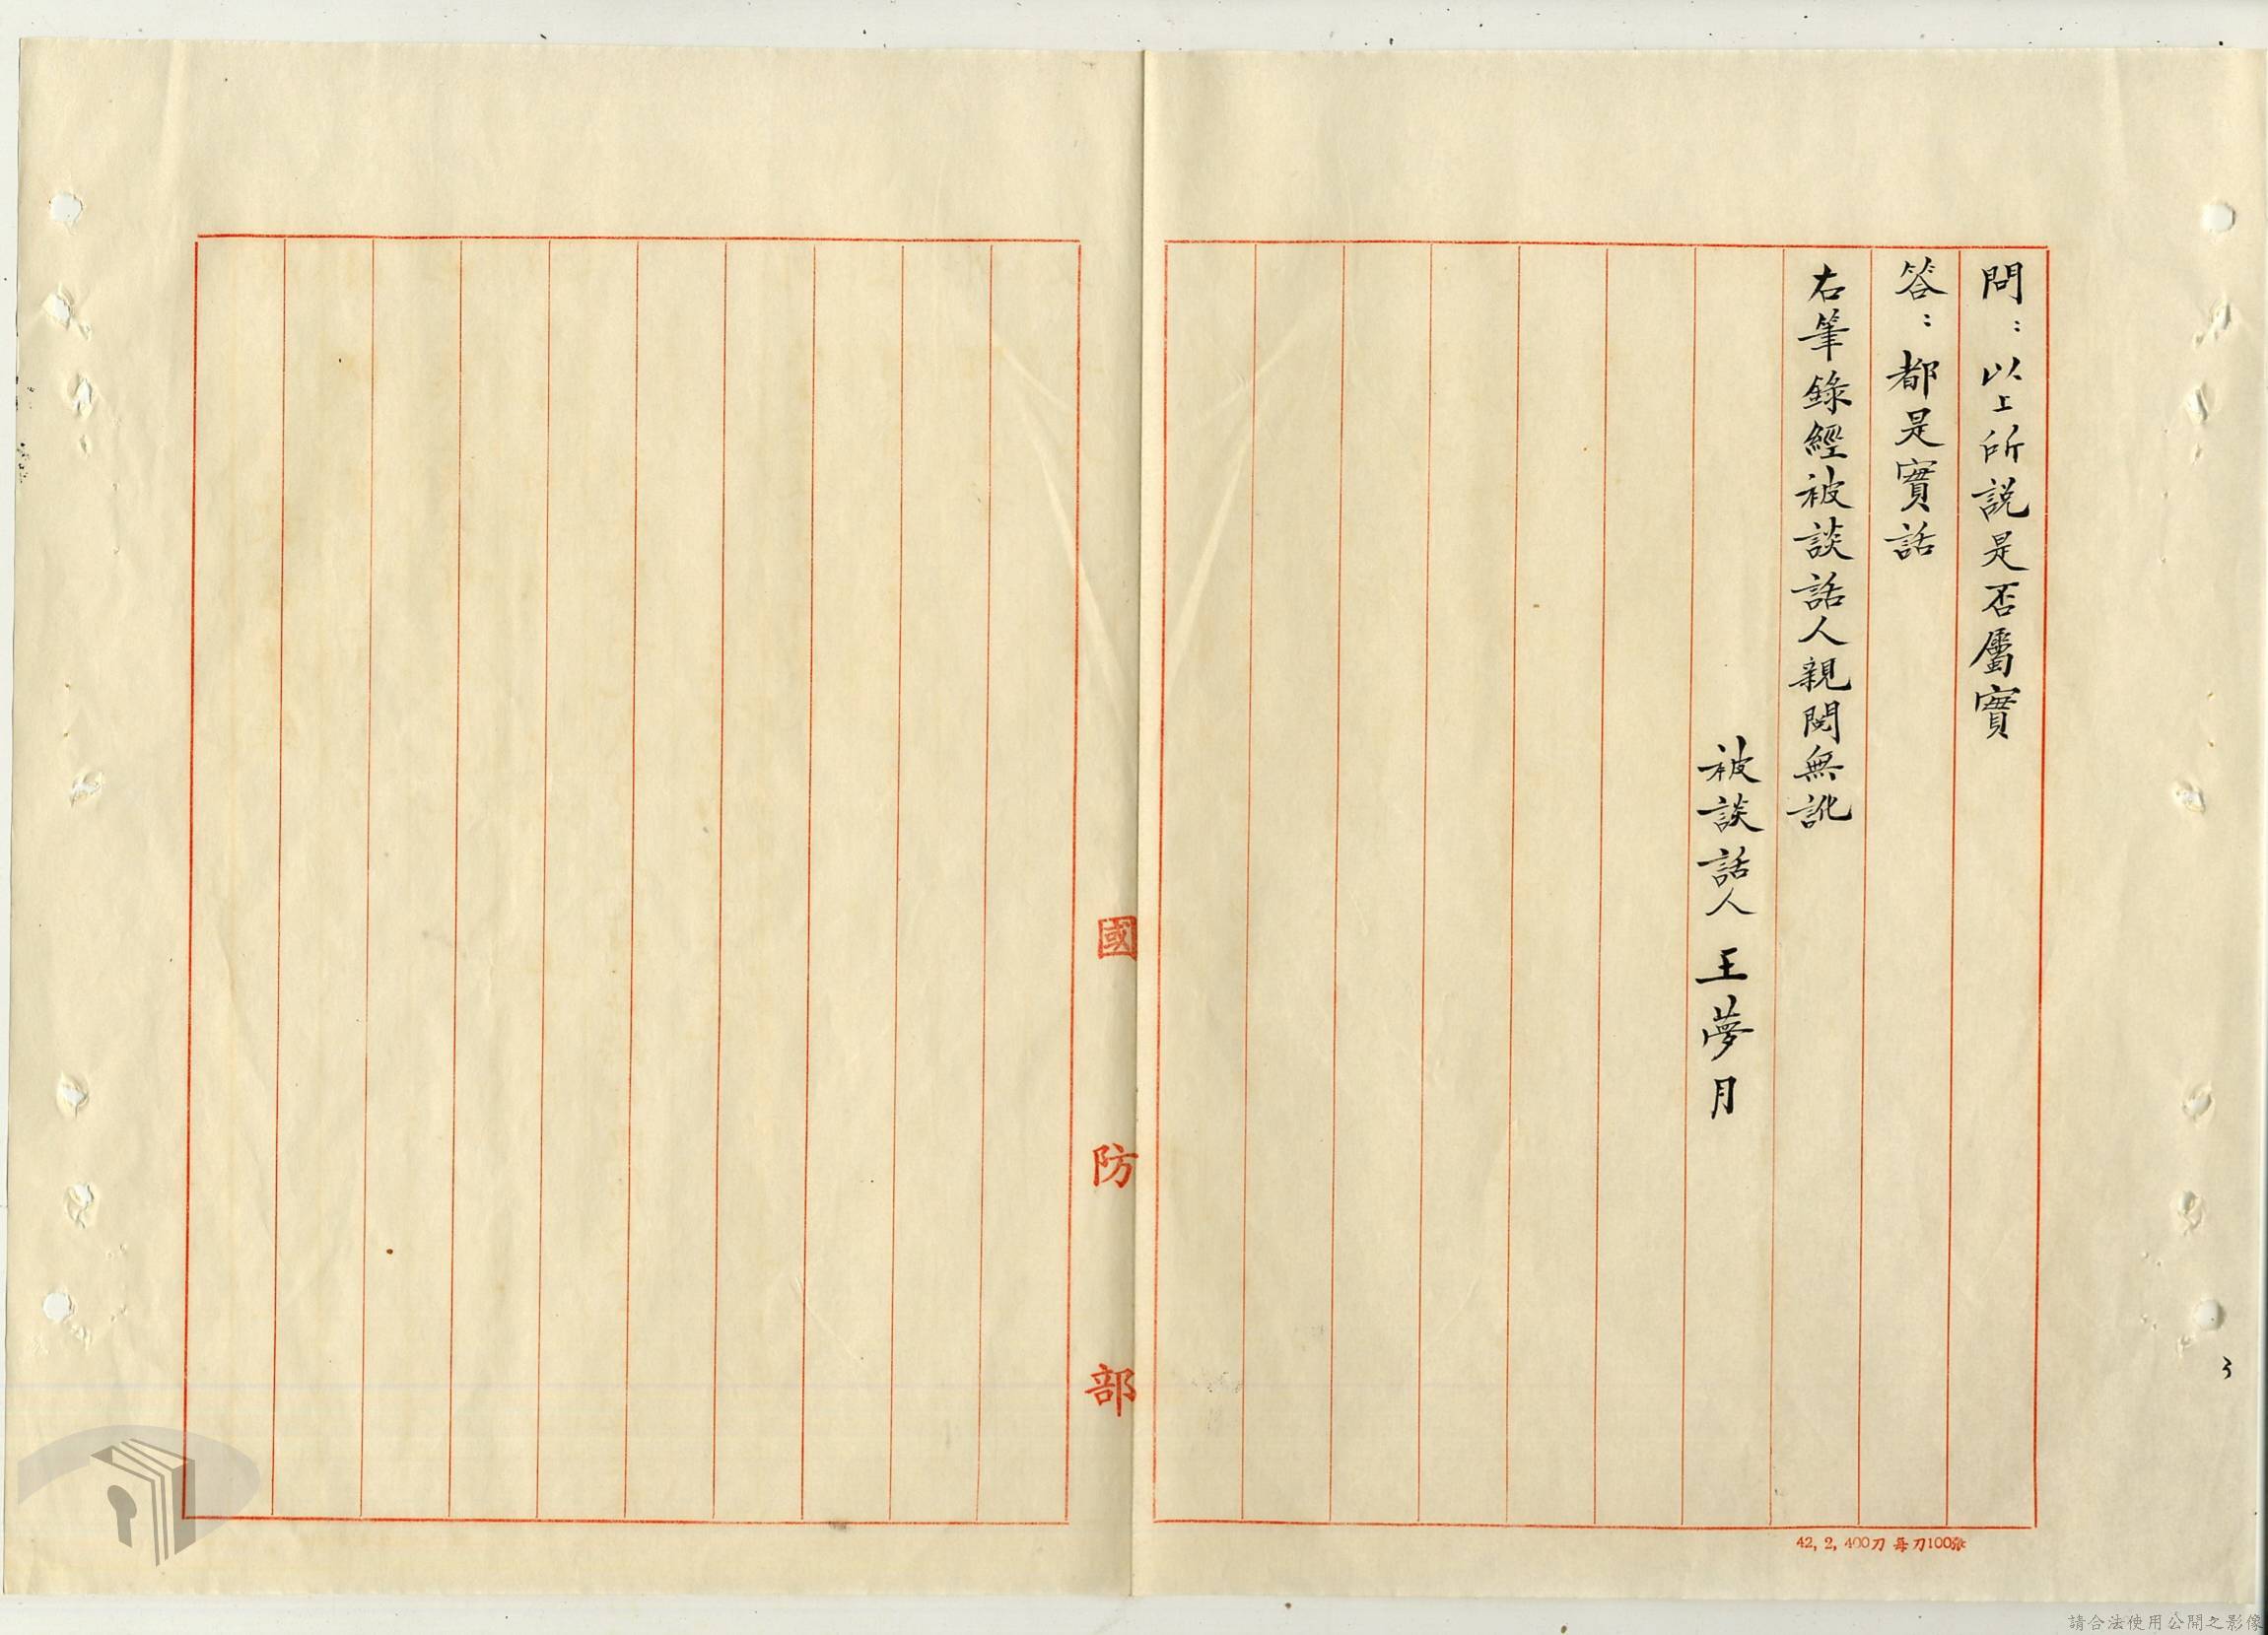 問：以上所説是否屬實
答：都是實話
右筆錄經被談話人親閱無訛
被談話人 王夢月
國防部
42, 2, 400刀 每刀100張
3
請合法使用公開之影像